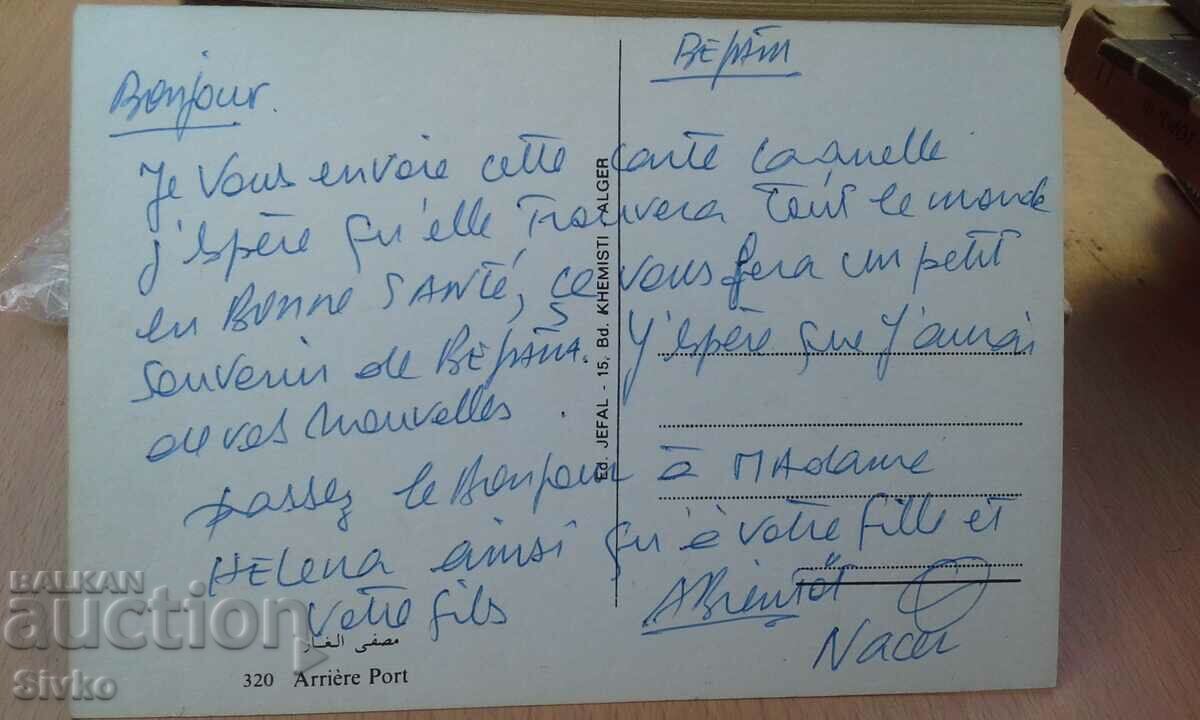 BEJAIA
Bonjour.
Je vous envoie cette carte laquelle
j'espère qu'elle Trouvera Tout le monde
en Bonne SANTÉ, ce vous fera un petit
souvenir de BEJAÏA. J'espère que j'aurai
de vos nouvelles.
passez le Bonjour à MAdame
HELena ainsi qu'à votre fille et
votre fils
A Bientôt
Nacer
Ed. JEFAL - 15, Bd. KHEMISTI ALGER
مصفى الغاز
320 Arrière Port
BALKAN
auction
Sivko